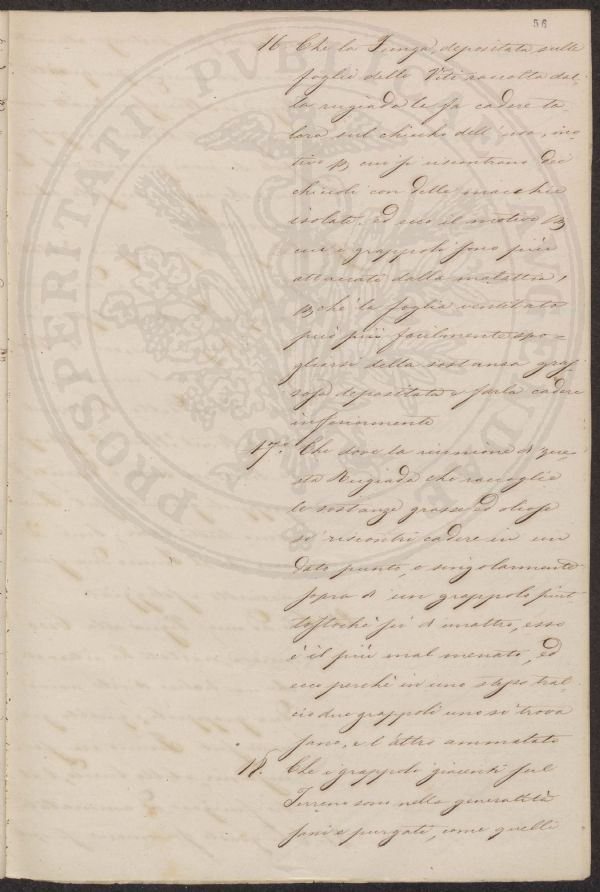 56
16. Che la Funga, depositata sulle
foglie delle Viti raccolta dal-
la rugiada la fa cadere ta
lora sul chicco dell'uva, mo-
tivo p cui si riscontrano dei
chicchi con delle macchie
isolate. ed ecco il motivo p
cui i grappoli sono più
attaccati dalla malattia,
pchè la foglia ventilata
può più facilmente spo-
gliarsi della sostanza gras-
sosa depositata e farla cadere
inferiormente
17.° Che dove la riunione di que-
sta Rugiada che raccoglie
le sostanze grasse ed oliose
si riscontri cadere in un
dato punto, e singolarmente
sopra di un grappolo piut
tostochè su di un altro, esso
è il più mal menato, ed
ecco perchè in uno stesso tral-
cio due grappoli uno si trova
sano, e l'altro ammalato
18. Che i grappoli giacenti sul
Terreno sono nella generalità
sani e purgati, come quelli
PROSPERITATI PUBLICAE